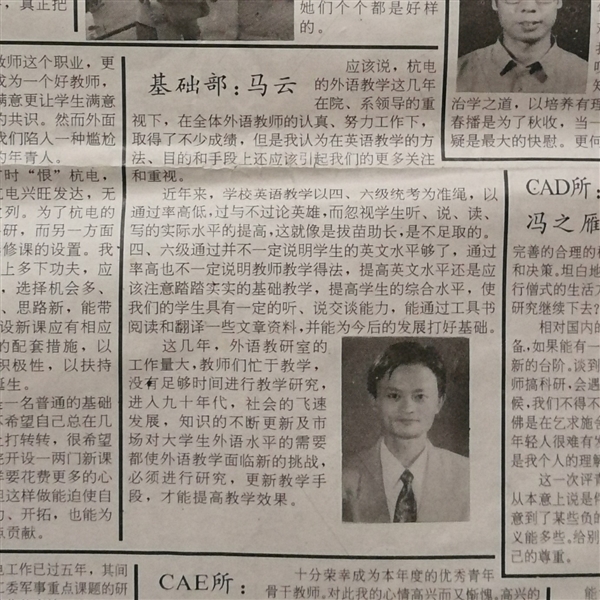 真正把
她们个个都是好样
的。
教师这个职业，更
成为一个好教师，
满意更让学生满意
的共识。然而外面
我们陷入一种尴尬
的年青人。
时“恨”杭电，
电兴旺发达，无
列。为了杭电的
研，而另一方面
修课的设置。我
上多下功夫，应
，选择机会多、
、思路新，能带
设新课应有相应
的配套措施，以
积极性，以扶持
诞生。
一名普通的基础
不希望自己总在几
上打转转，很希望
能开设一两门新课
要花费更多的心
这样做能迫使自
力、开拓，也能为
点贡献。
电工作已过五年，其间
工委军事重点课题的研
基础部：马云
应该说，杭电
的外语教学这几年
在院、系领导的重
视下，在全体外语教师的认真、努力工作下，
取得了不少成绩，但是我认为在英语教学的方
法、目的和手段上还应该引起我们的更多关注
和重视。
近年来，学校英语教学以四、六级统考为准绳，以
通过率高低，过与不过论英雄，而忽视学生听、说、读、
写的实际水平的提高，这就像是拔苗助长，是不足取的。
四、六级通过并不一定说明学生的英文水平够了，通过
率高也不一定说明教师教学得法，提高英文水平还是应
该注意踏踏实实的基础教学，提高学生的综合水平，使
我们的学生具有一定的听、说交谈能力，能通过工具书
阅读和翻译一些文章资料，并能为今后的发展打好基础。
这几年，外语教研室的
工作量大，教师们忙于教学，
没有足够时间进行教学研究，
进入九十年代，社会的飞速
发展，知识的不断更新及市
场对大学生外语水平的需要
都使外语教学面临新的挑战，
必须进行研究，更新教学手
段，才能提高教学效果。
CAE所：
十分荣幸成为本年度的优秀青年
骨干教师。对此我的心情高兴而又惭愧。高兴的
治学之道，以培养有理
春播是为了秋收，当一
疑是最大的快慰。更何
CAD所：
冯之雁
完善的合理的
和决策。坦白地
行僧式的生活方
研究继续下去？
相对国内的
备，如果能有一
新的台阶。谈到
师搞科研，会遇
候，我们不得不
佛是在乞求施舍
年轻人很难有发
是我个人的理解
这一次评青
从本意上说是件
意到了某些负的
义能多些。给别
己的尊重。